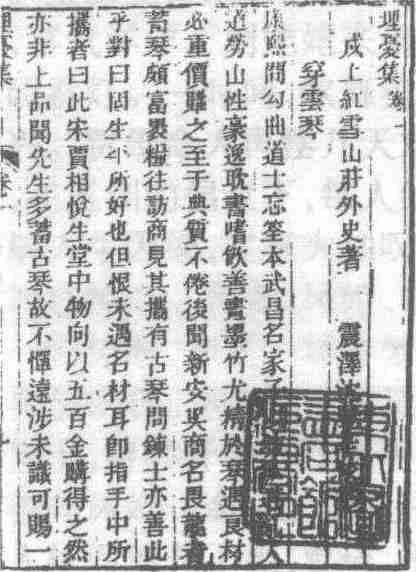 埋憂集卷一
戍上紅雪山莊外史著　震澤
穿雲琴
康熙間勾曲道士忘筌本武昌名家子
道勞山性豪逸耽書嗜飲善畫墨竹尤精於琴遇良材
必重價購之至于典質不倦後聞新安吳商名畏龍者
蓄琴頗富裹糧往訪商見其攜有古琴問鍊士亦善此
乎對曰固生平所好也但恨未遇名材耳卽指手中所
攜者曰此宋賈相悅生堂中物向以五百金購得之然
亦非上品聞先生多蓄古琴故不憚遠涉未識可賜一
埋憂集 卷一